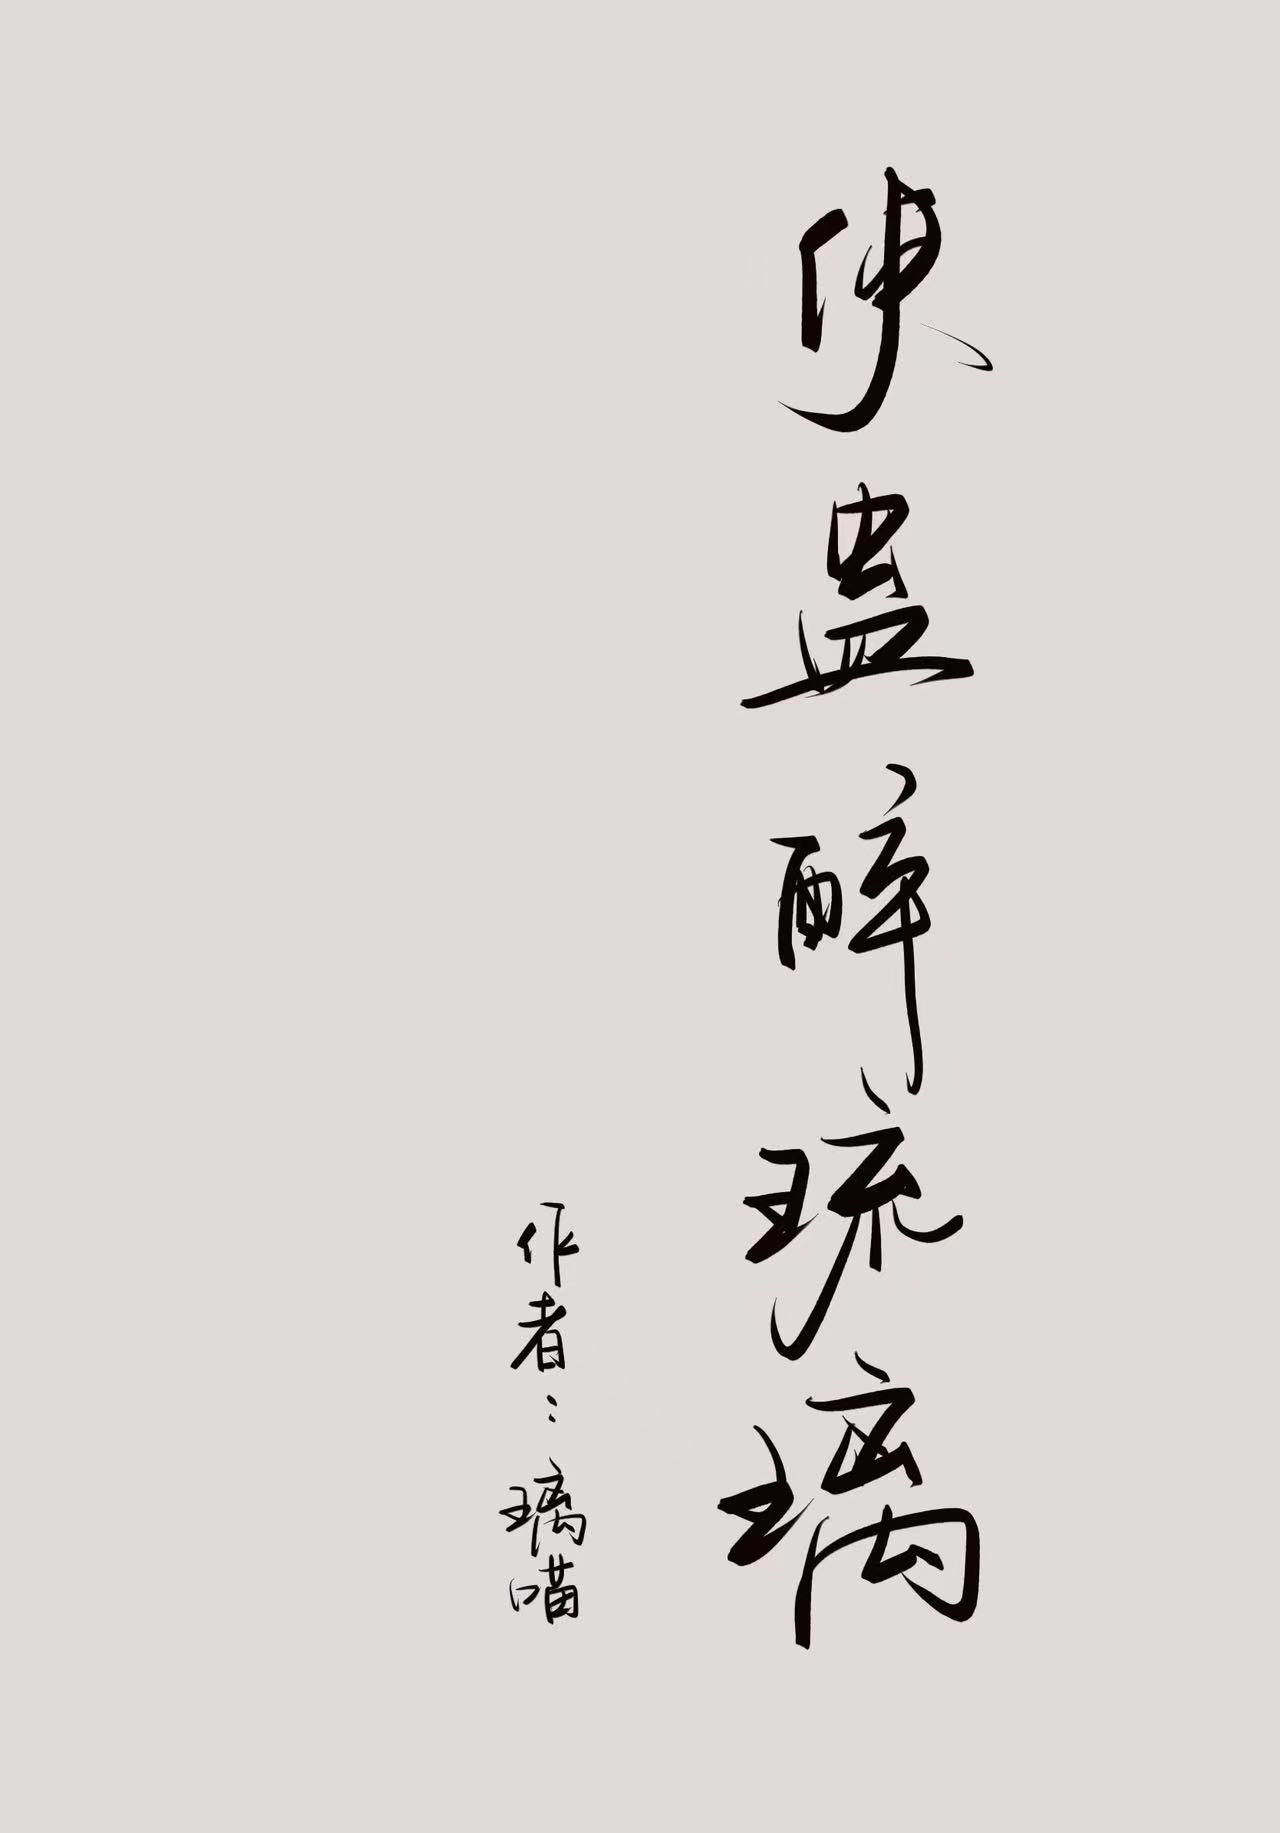 使蛊醉琉璃
作者：璃喵